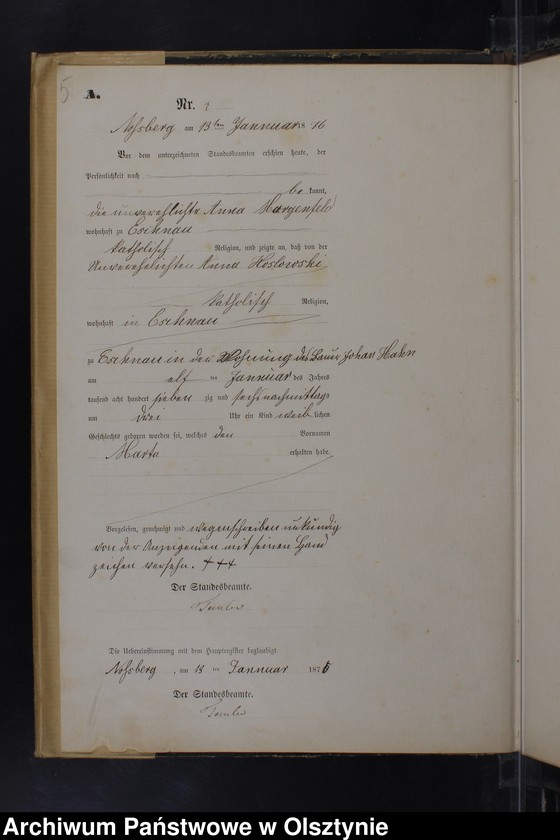 5
A.
Nr. 1
Nossberg am 13ten Jannuar 1876
Vor dem unterzeichneten Standesbeamten erschien heute, der
Persönlichkeit nach
be kannt,
die unverehlichte Anna Hargenfeld
wohnhaft zu Eschnau
katholisch Religion, und zeigte an, daß von der
Unverehelichten Anna Koslowski
katholisch Religion,
wohnhaft in Eschnau
zu Eschnau in der Wohnung des Bauer Johan Hahn
am elf ten Jannuar des Jahres
tausend acht hundert sieben zig und sechs nachmittags
um drei Uhr ein Kind weib lichen
Geschlechts geboren worden sei, welches den Vornamen
Marta erhalten habe.
Vorgelesen, genehmigt und wegen schreiben unkundig
von der Anzeigenden mit seinen Hand
zeichen versehn. +++
Der Standesbeamte.
Die Uebereinstimmung mit dem Hauptregister beglaubigt.
Nossberg, am 13 ten Jannuar 1876
Der Standesbeamte.
Archiwum Państwowe w Olsztynie